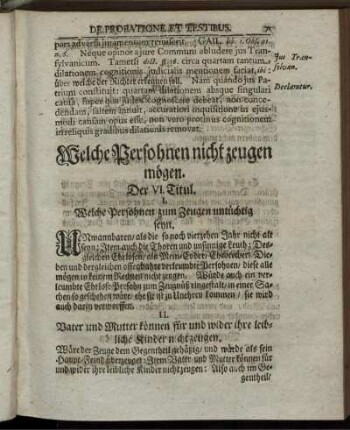 DE PROBATIONE ET TESTIBUS.
pars adversa
n. 8. Neque opinor à jure Communi abludere jus Tran-
sylvanicum. Tametsi dict. circa quartam tantum
dilationem cognitionis judicialis mentionem faciat,
über welche der Richter erkennen soll. Nam quando jus Pa-
trium constituit: quartam dilationem absque singulari
causa, super qua Judex cognoscere debeat, non conce-
dendam, saltem innuit, accuratiori inquisitione in ejus-
modi causam opus esse, non vero protinus cognitionem
in reliquis gradibus dilationis removat.
Jus Tran-
silvan.
Declaratur.
Welche Persohnen nicht zeugen
mögen.
Der VI. Titul.
I.
Welche Persohnen zum Zeugen untüchtig
seyn.
UNwannbaren/ als die so noch vierzehen Jahr nicht alt
seyn: Item auch die Thoren und unsinnige Leuth: Des-
gleichen Ehrlosen/ als Mein-Eyder/ Ehebrecher/ Die-
ben und dergleichen offenbahre verleumbte Persohnen/ diese alle
mögen in keinem Rechten nicht zeugen. Würde auch ein ver-
leumbte Ehrlose Persohn zum Zeugnüß eingestalt/ in einer Sa-
chen so geschehen wäre/ ehe sie ist zu Unehren kommen/ sie wird
auch darin verworffen.
II.
Vater und Mutter können für und wider ihre leib-
liche Kinder nicht zeugen.
Wäre der Zeuge dem Gegentheil gehäßig/ und würde als sein
Haupt-Feind überzeuget: Item Vater und Mutter können für
und wider ihre leibliche Kinder nicht zeugen: Also auch im Ge-
gentheil/